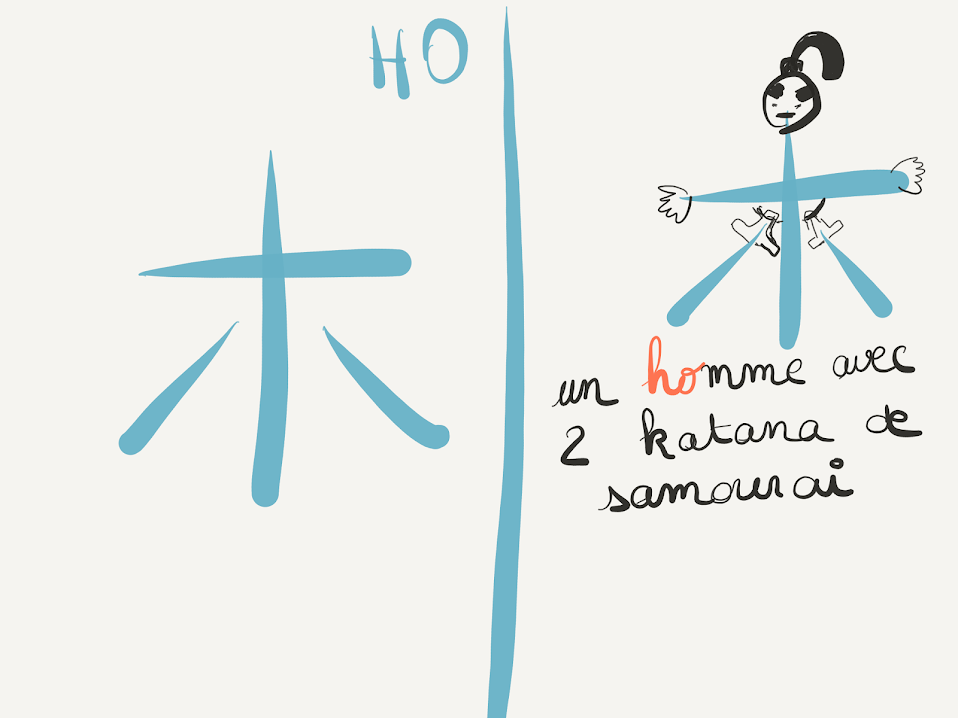 HO
ホ
un homme avec
2 katana de
samouraï